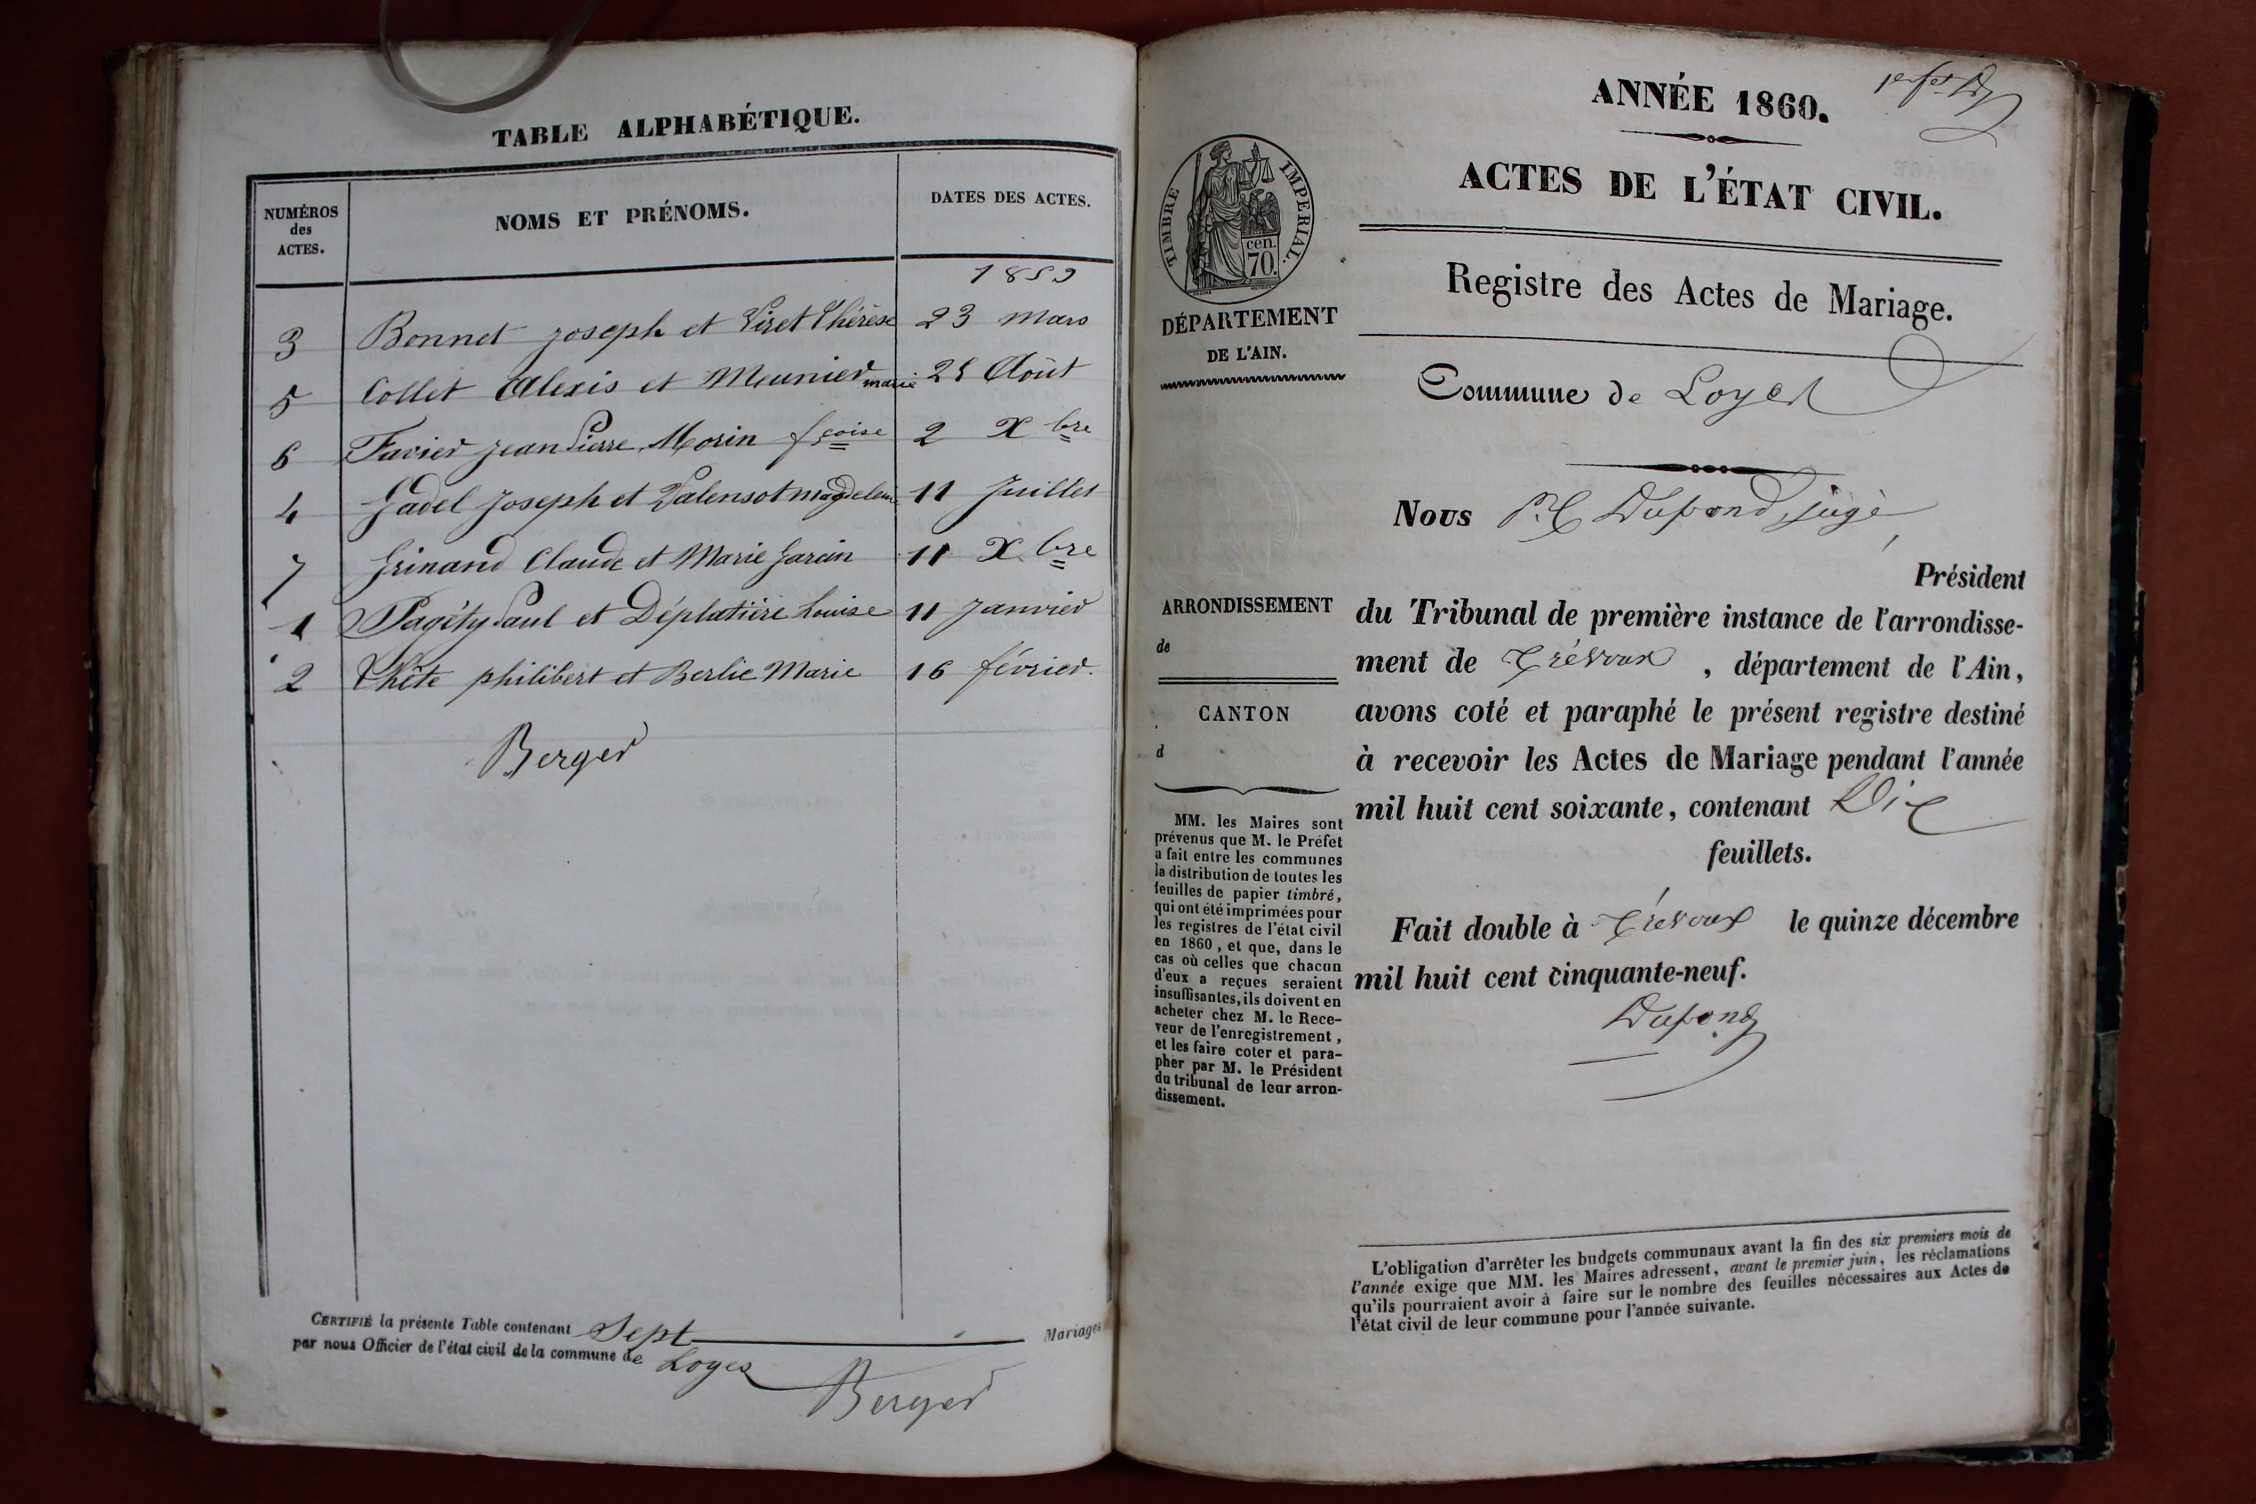 TABLE ALPHABÉTIQUE.
NUMÉROS des ACTES.
NOMS ET PRÉNOMS.
DATES DES ACTES.
1859
3 Bonnet joseph et Viret Thérèse 23 Mars
5 Collet Alexis et Meunier marie 25 Août
6 Favier jean Pierre, Morin fçoise 2 Xbre
4 Gadel Joseph et Palensot magdeleine 11 Juillet
7 Grinand Claude et Marie Garcin 11 Xbre
1 Pagéty Paul et Déplatière Louise 11 Janvier
2 Thête philibert et Berlie Marie 16 février.
Berger
CERTIFIÉ la présente Table contenant Sept Mariages
par nous Officier de l'état civil de la commune de Loyes
Berger
ANNÉE 1860.
ACTES DE L'ÉTAT CIVIL.
Registre des Actes de Mariage.
TIMBRE IMPERIAL.
cen.
70.
DÉPARTEMENT
DE L'AIN.
Commune de Loyes
Nous Dupond, juge
Président
ARRONDISSEMENT
de
CANTON
d
du Tribunal de première instance de l'arrondisse-
ment de Trévoux, département de l'Ain,
avons coté et paraphé le présent registre destiné
à recevoir les Actes de Mariage pendant l'année
mil huit cent soixante, contenant Dix
feuillets.
Fait double à Trévoux le quinze décembre
mil huit cent cinquante-neuf.
Dupond
MM. les Maires sont
prévenus que M. le Préfet
a fait entre les communes
la distribution de toutes les
feuilles de papier timbré,
qui ont été imprimées pour
les registres de l'état civil
en 1860, et que, dans le
cas où celles que chacun
d'eux a reçues seraient
insuffisantes, ils doivent en
acheter chez M. le Rece-
veur de l'enregistrement,
et les faire coter et para-
pher par M. le Président
du tribunal de leur arron-
dissement.
L'obligation d'arrêter les budgets communaux avant la fin des six premiers mois de
l'année exige que MM. les Maires adressent, avant le premier juin, les réclamations
qu'ils pourraient avoir à faire sur le nombre des feuilles nécessaires aux Actes de
l'état civil de leur commune pour l'année suivante.